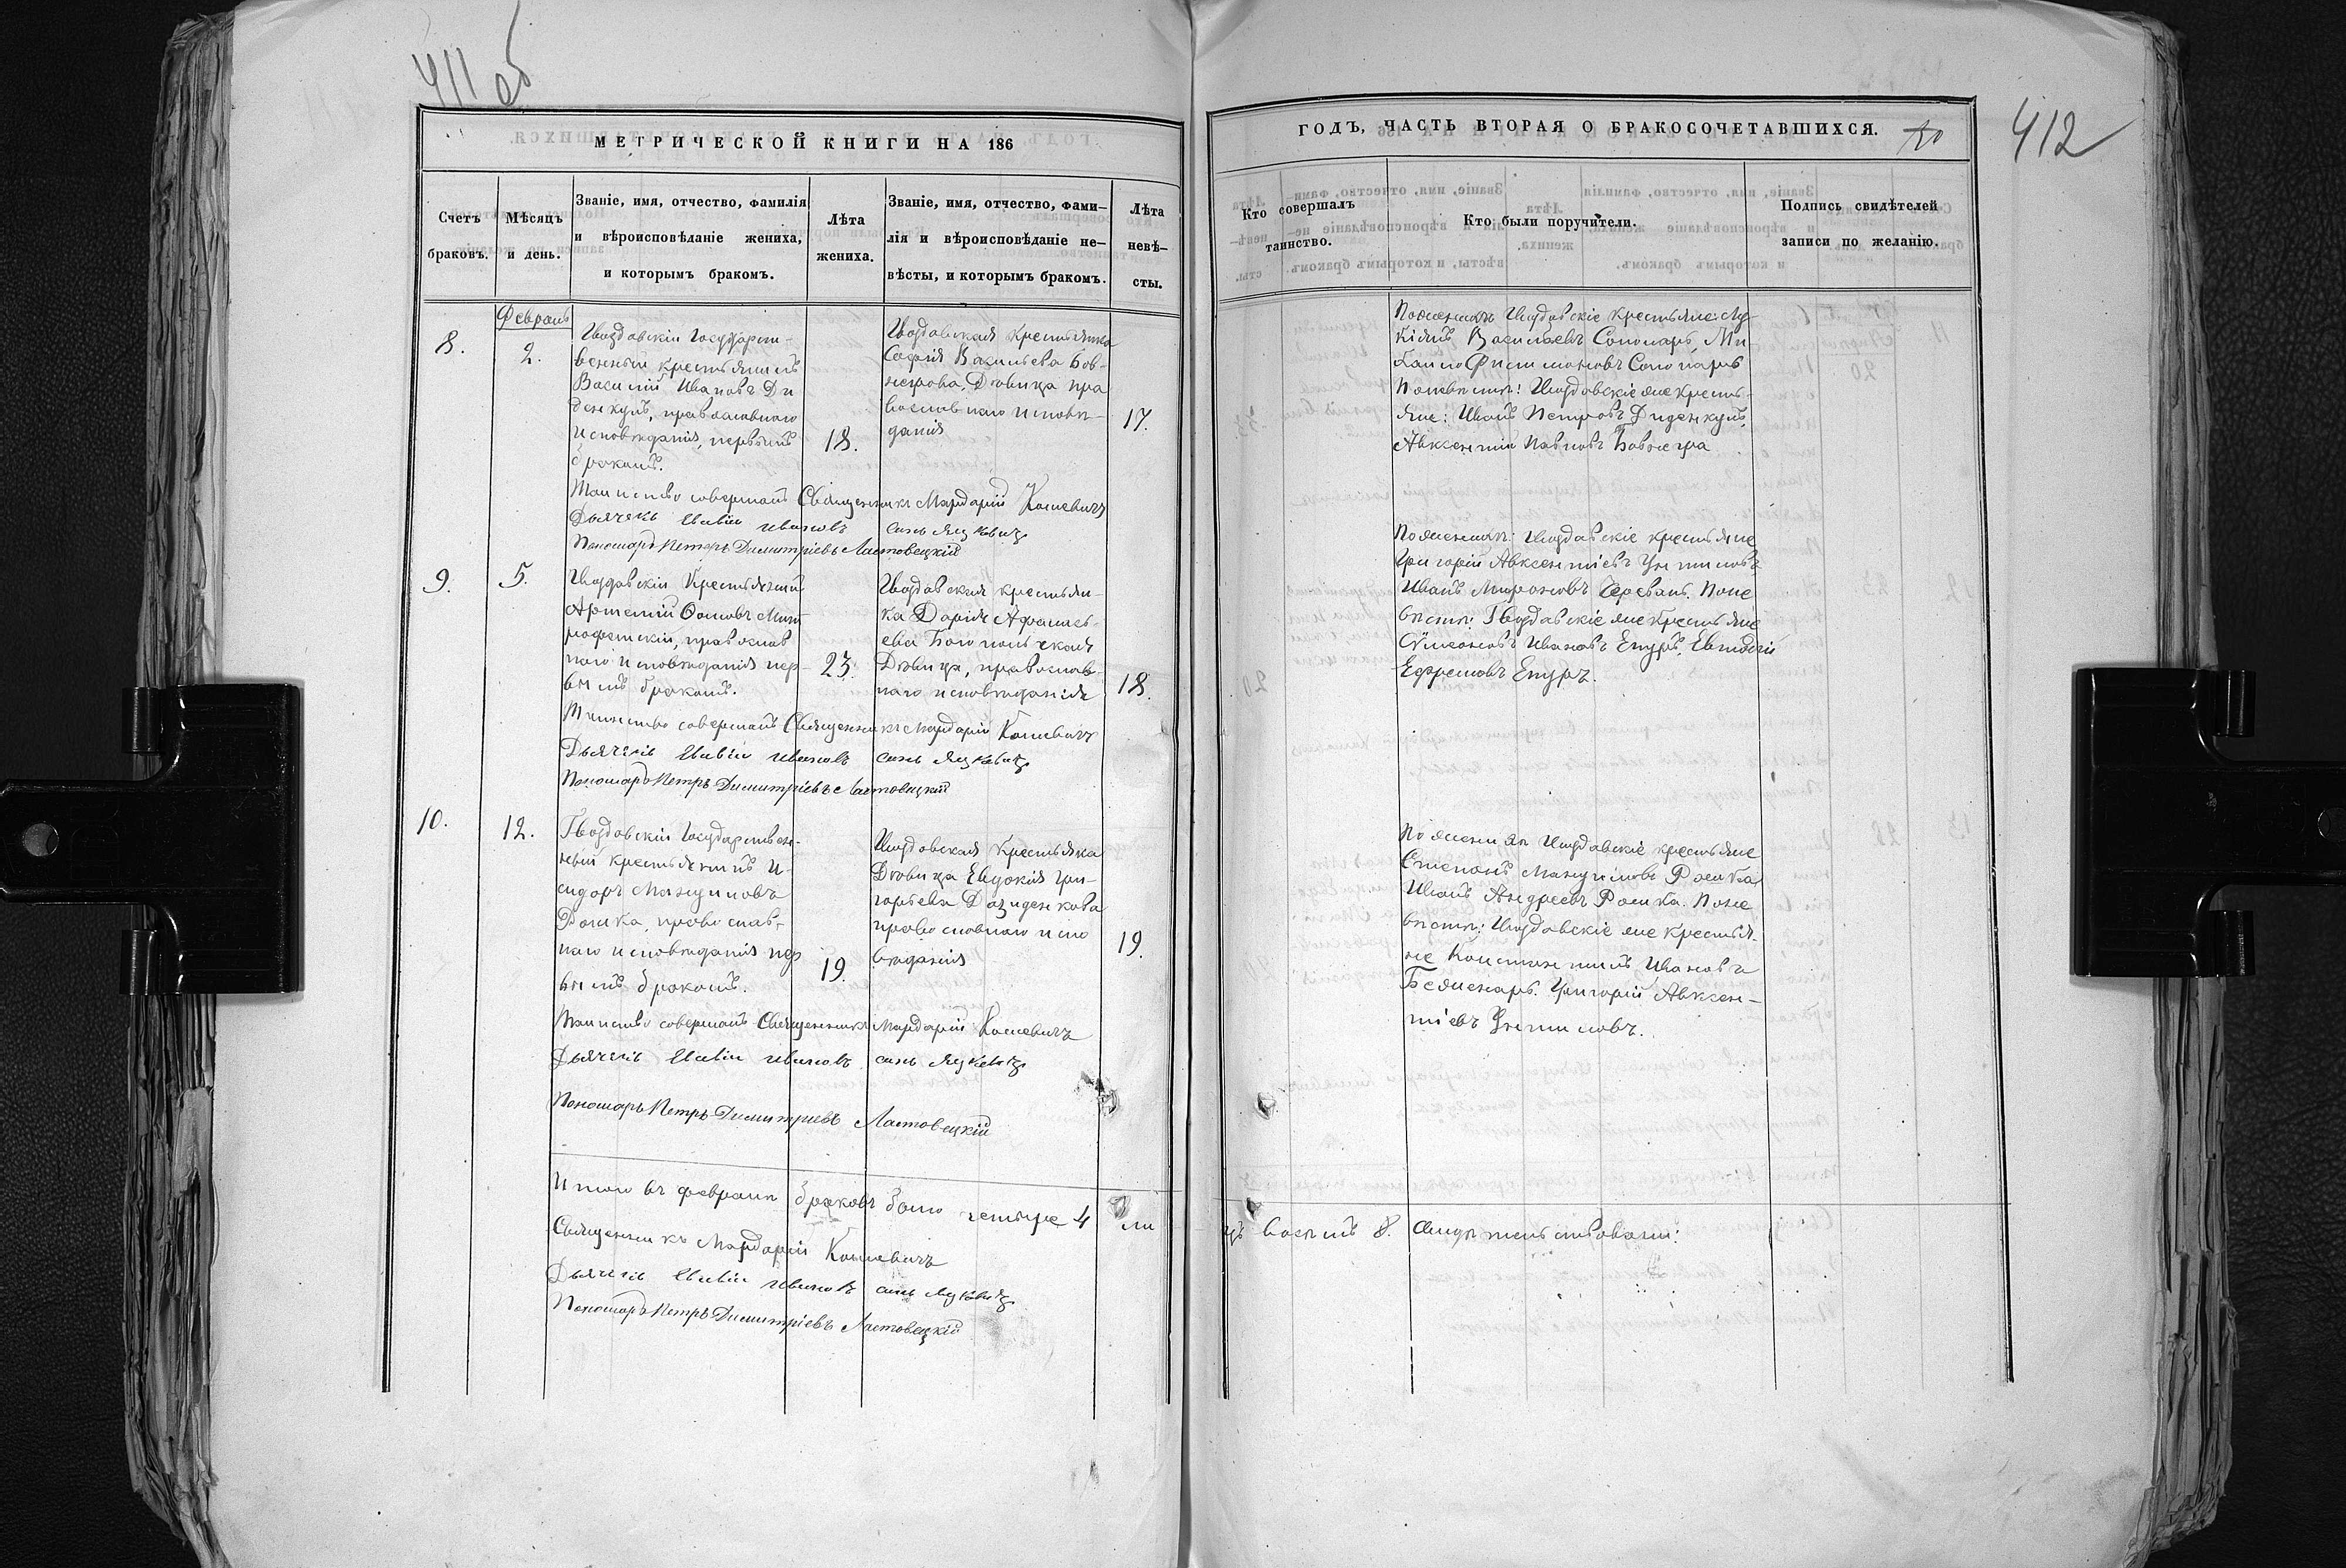 411 об
МЕТРИЧЕСКОЙ КНИГИ НА 186
Счетъ браковъ.
Мѣсяцъ и день.
Званіе, имя, отчество, фамилія
и вѣроисповѣданіе жениха,
и которымъ бракомъ.
Лѣта жениха.
Званіе, имя, отчество, фами–
лія и вѣроисповѣданіе не–
вѣсты, и которымъ бракомъ.
Лѣта невѣ–
сты.
Февраль
8.
2.
Гвоздовскій Государст-
венный крестьянинъ
Василій Ивановъ Ди
денкулъ, православнаго
исповѣданія, первымъ
бракомъ.
18.
Гвоздовская крестьянка
Софія Васильева Бов-
негрова, Дѣвица пра
вославнаго исповѣ-
данія
17.
Таинство совершалъ Священникъ Мардарій
Дьячекъ Ивановъ сынъ Яцкевичъ
Пономарь Петръ Димитріевъ Ластовецкій
9.
5.
Гвоздовскій Крестьянинъ
Артемій Ѳомовъ Мит
рофанскій, православ
наго исповѣданія пер
вымъ бракомъ.
23.
Гвоздовская крестьян-
ка Дарія Афанась-
ева Богопольская
Дѣвица, православ-
наго исповѣданія
18.
Таинство совершалъ Священникъ Мардарій
Дьячекъ Ивановъ сынъ Яцкевичъ
Пономарь Петръ Димитріевъ Ластовецкій
10.
12.
Гвоздовскій Государствен-
ный крестьянинъ И-
сидоръ Мануиловъ
Рошка, православ-
наго исповѣданія пер
вымъ бракомъ.
19.
Гвоздовская Крестьянка
Дѣвица Евдокія Гри-
горьева Дозиденкова
православнаго испо
вѣданія
19.
Таинство совершалъ Священникъ Мардарій
Дьячекъ Ивановъ сынъ Яцкевичъ
Пономарь Петръ Димитріевъ Ластовецкій
Итого въ февралѣ браковъ было четыре 4
Священникъ Мардарій
Дьячекъ Ивановъ сынъ Яцкевичъ
Пономарь Петръ Димитріевъ Ластовецкій
412
ГОДЪ, ЧАСТЬ ВТОРАЯ О БРАКОСОЧЕТАВШИХСЯ.
Кто совершалъ
таинство.
Кто были поручители.
Подпись свидѣтелей
записи по желанію.
По женихѣ Гвоздовскіе крестьяне: Лу-
кіянъ Василіевъ Сопомарь, Ми
Сопомарь
По невѣстѣ: Гвоздовскіе же кресть-
яне: Иванъ Петровъ Диденкулъ,
Авксентій Павловъ Бовнегра
По женихѣ: Гвоздовскіе крестьяне
Григорій Авксентіевъ
Иванъ Мироновъ Череванъ. По не
вѣстѣ: Гвоздовскіе же крестьяне
Сѵмеонъ Ивановъ Епуръ, Евтихій
Ефремовъ Епуръ.
По женихѣ Гвоздовскіе крестьяне
Степанъ Мануиловъ Рошка
Иванъ Андреевъ Рошка. По не
вѣстѣ: Гвоздовскіе же крестья-
не Константинъ Ивановъ
Бежен​арь. Григорій Авксен-
тіевъ
восемъ 8. Свидѣтельствовали: